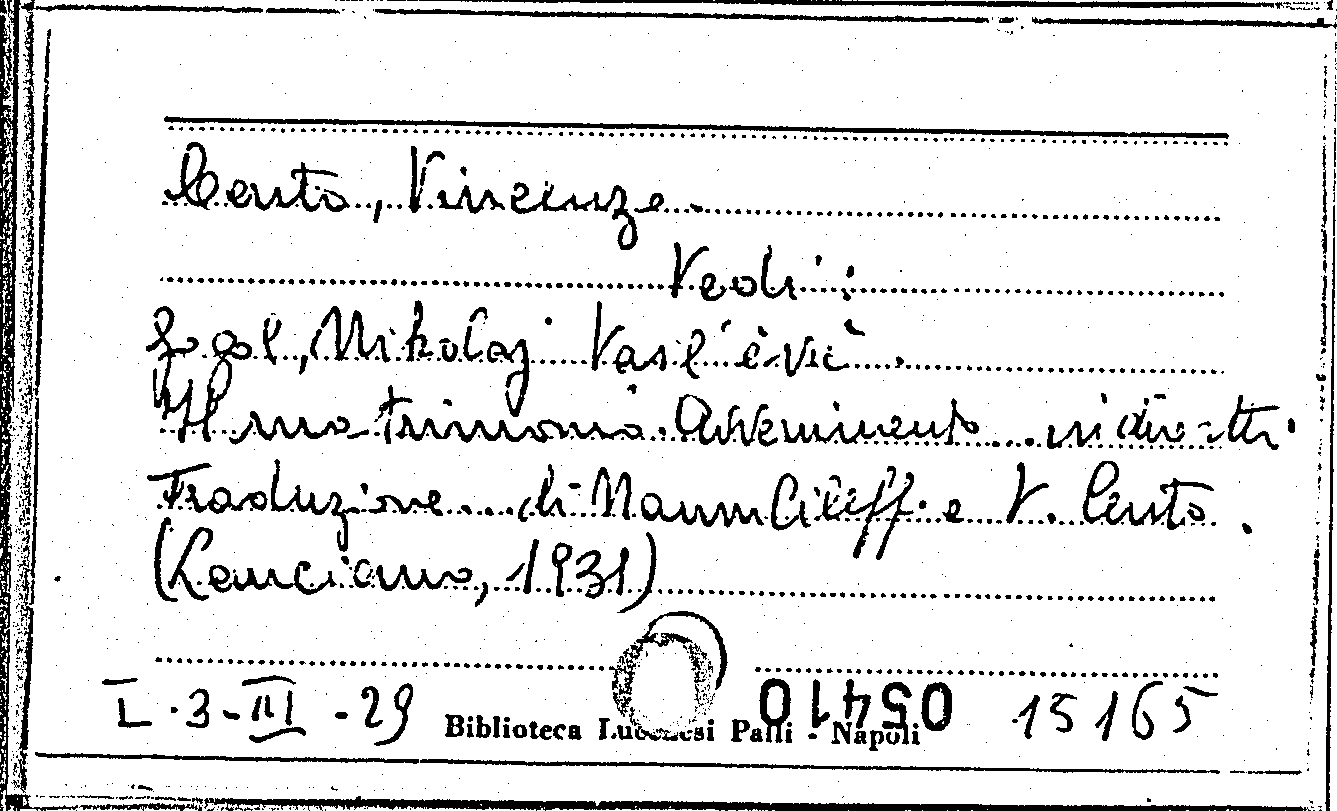 Cento, Vincenzo.
Vedi:
Gogol, Nikolaj Vasl'èvič.
Il matrimonio. Avvenimento ... in due atti.
Traduzione ... di Naum Cileff. e V. Cento.
(Lanciano, 1931)
I.3-III-29 Biblioteca Lucchesi Palli - Napoli 05410 15165